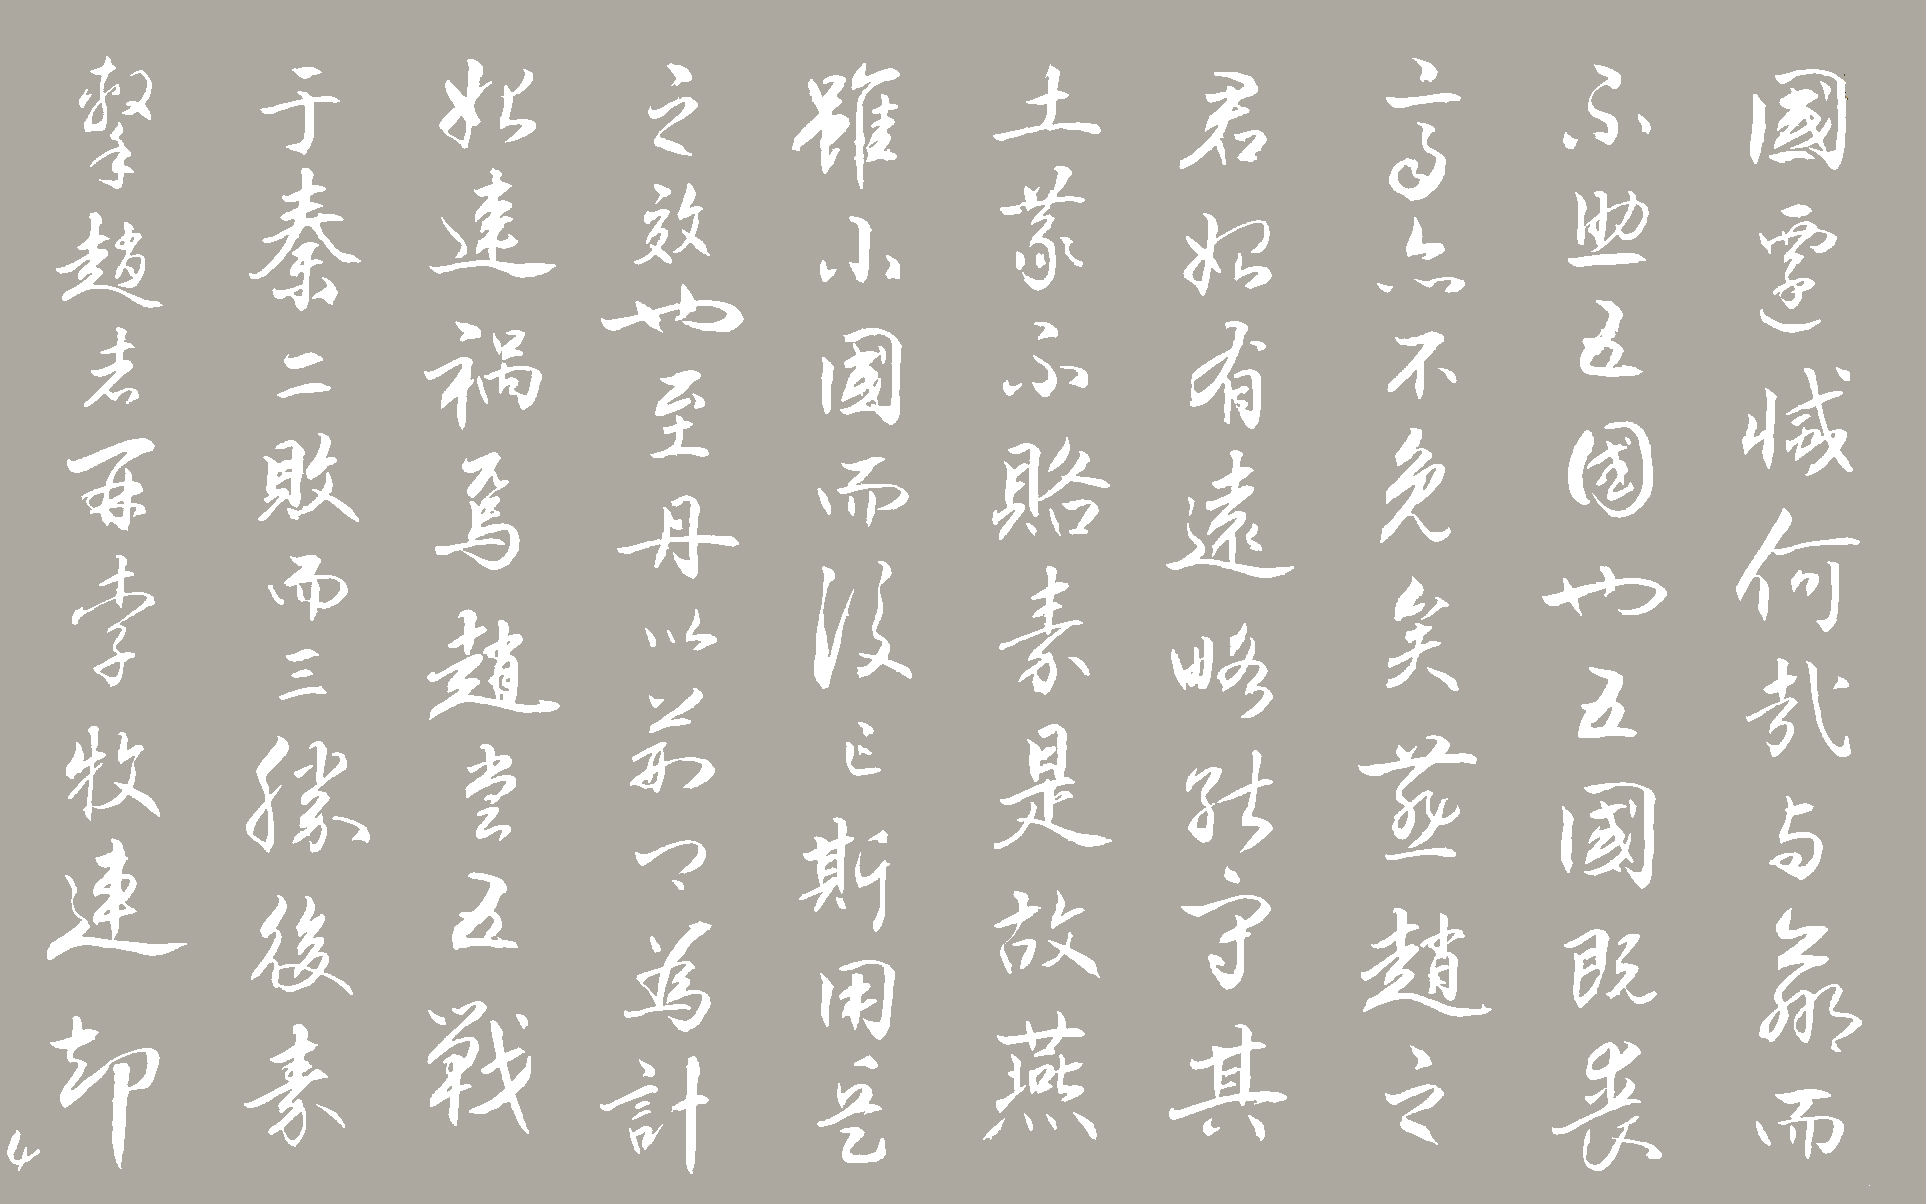 國遷滅何哉与嬴而
不助五國也五國既喪
齊亦不免矣燕趙之
君始有遠略能守其
土義不賂秦是故燕
雖小國而後亡斯用兵
之效也至丹以荊卿為計
始速禍焉趙嘗五戰
于秦二敗而三勝後秦
擊趙者再李牧連却
4